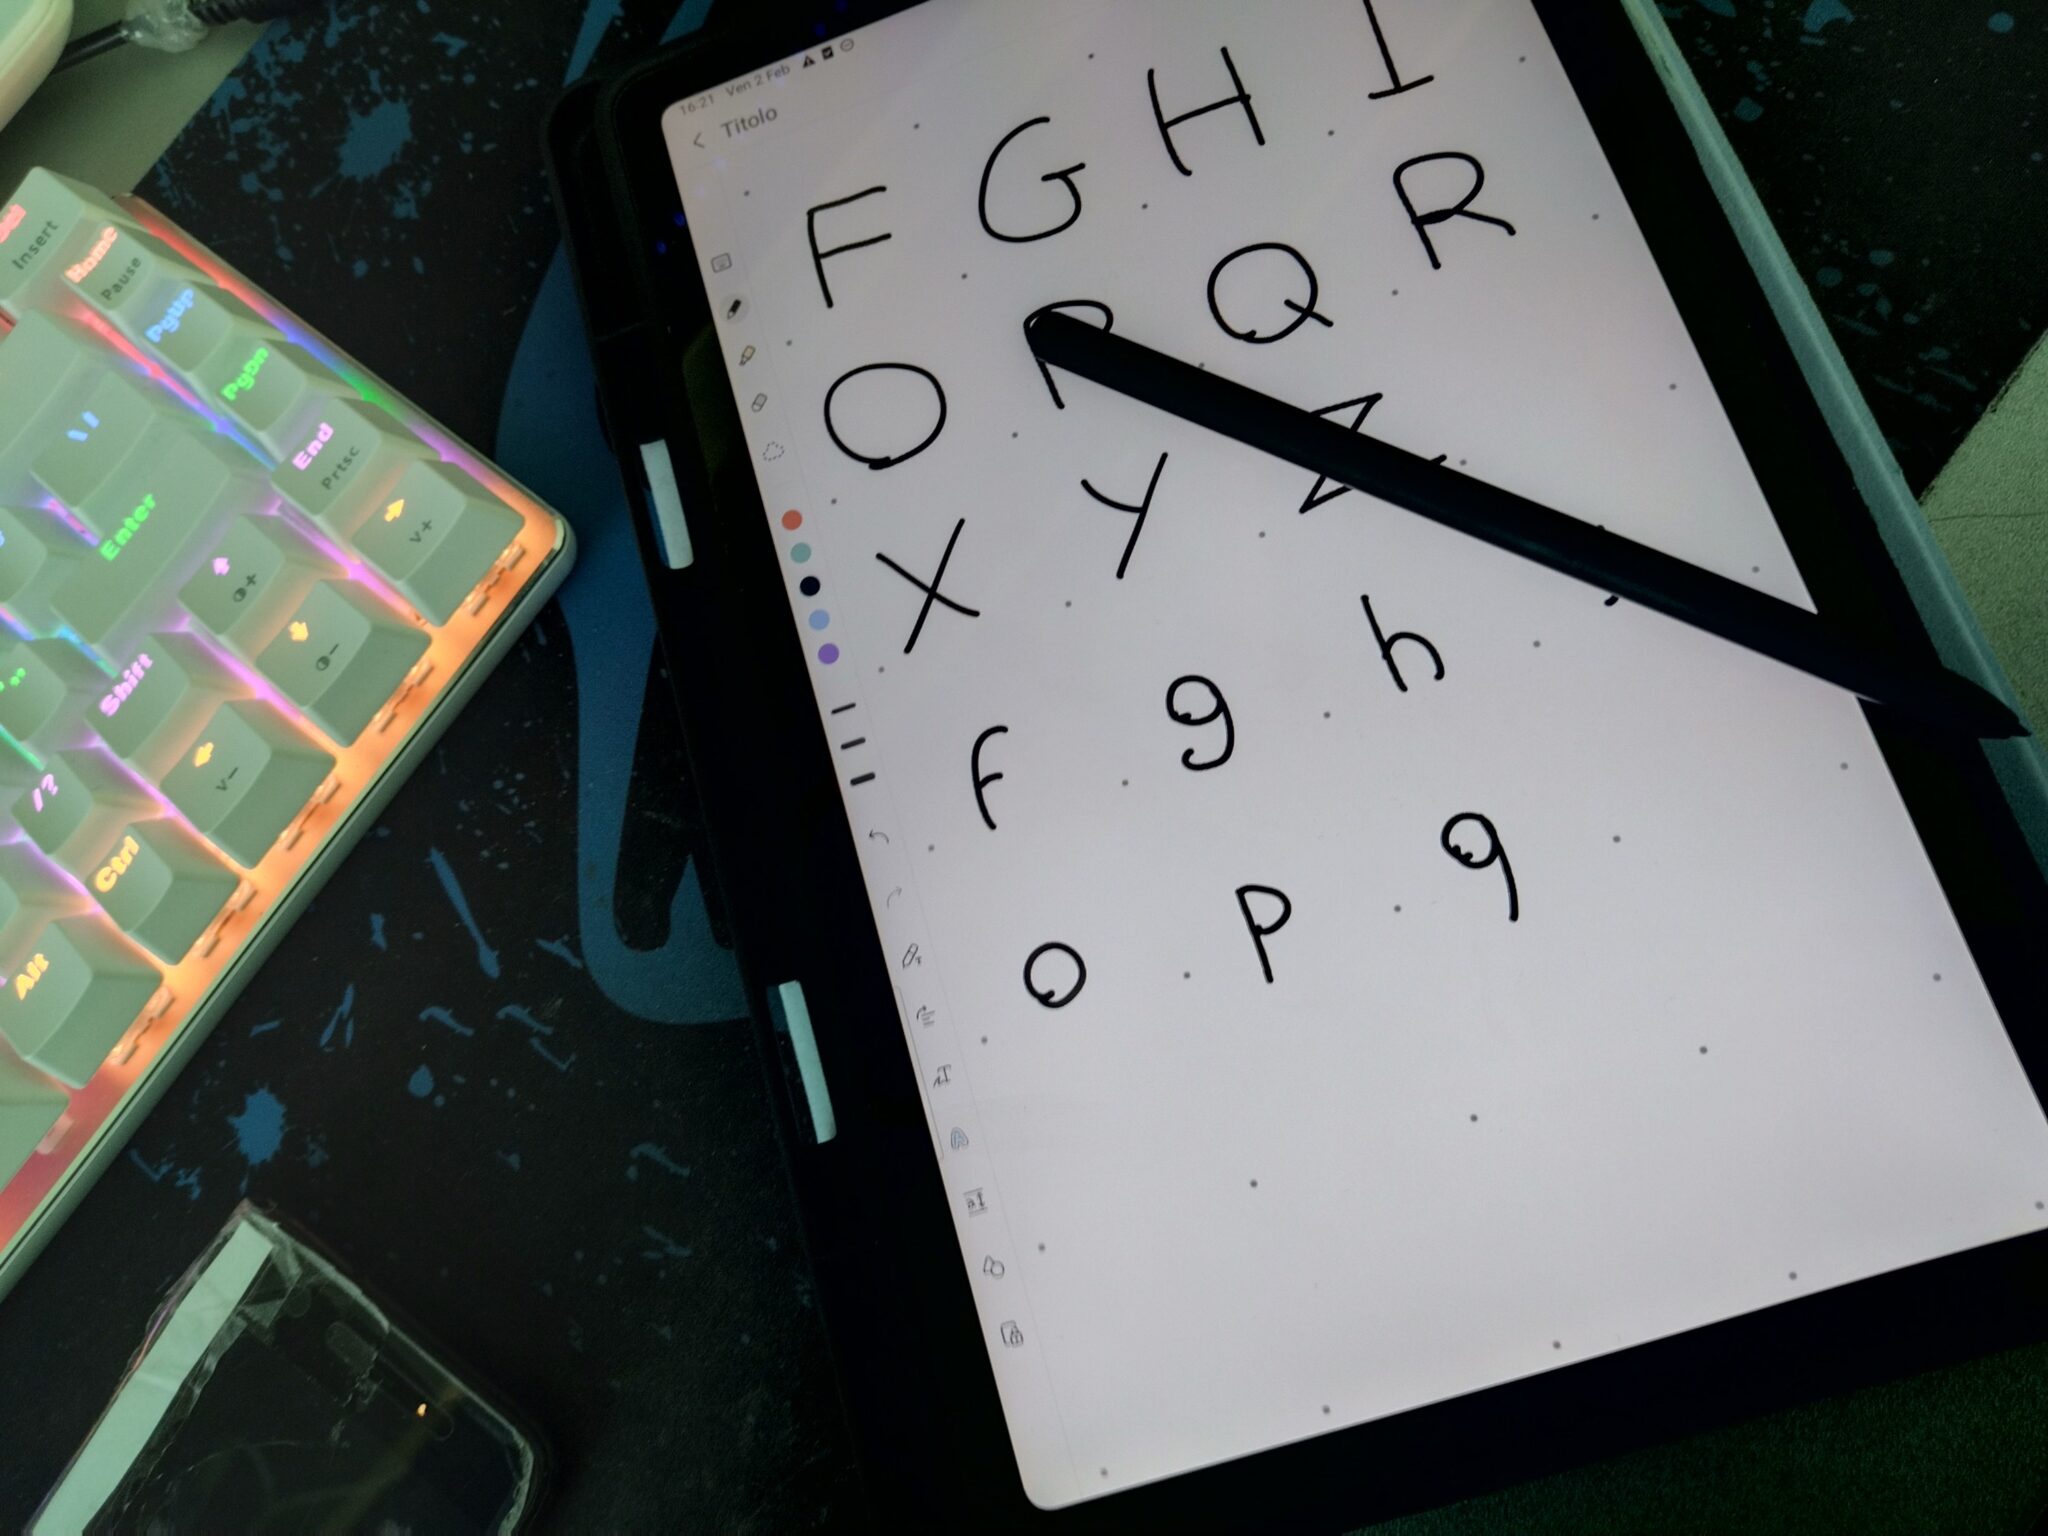 16:21 Ven 2 Feb
Titolo
F G H I
O P Q R
X Y Z
f g h
o p q
Insert
Home
Pause
PgUp
PgDn
End
Prtsc
\|
Enter
V+
Shift
/?
V-
Ctrl
Alt